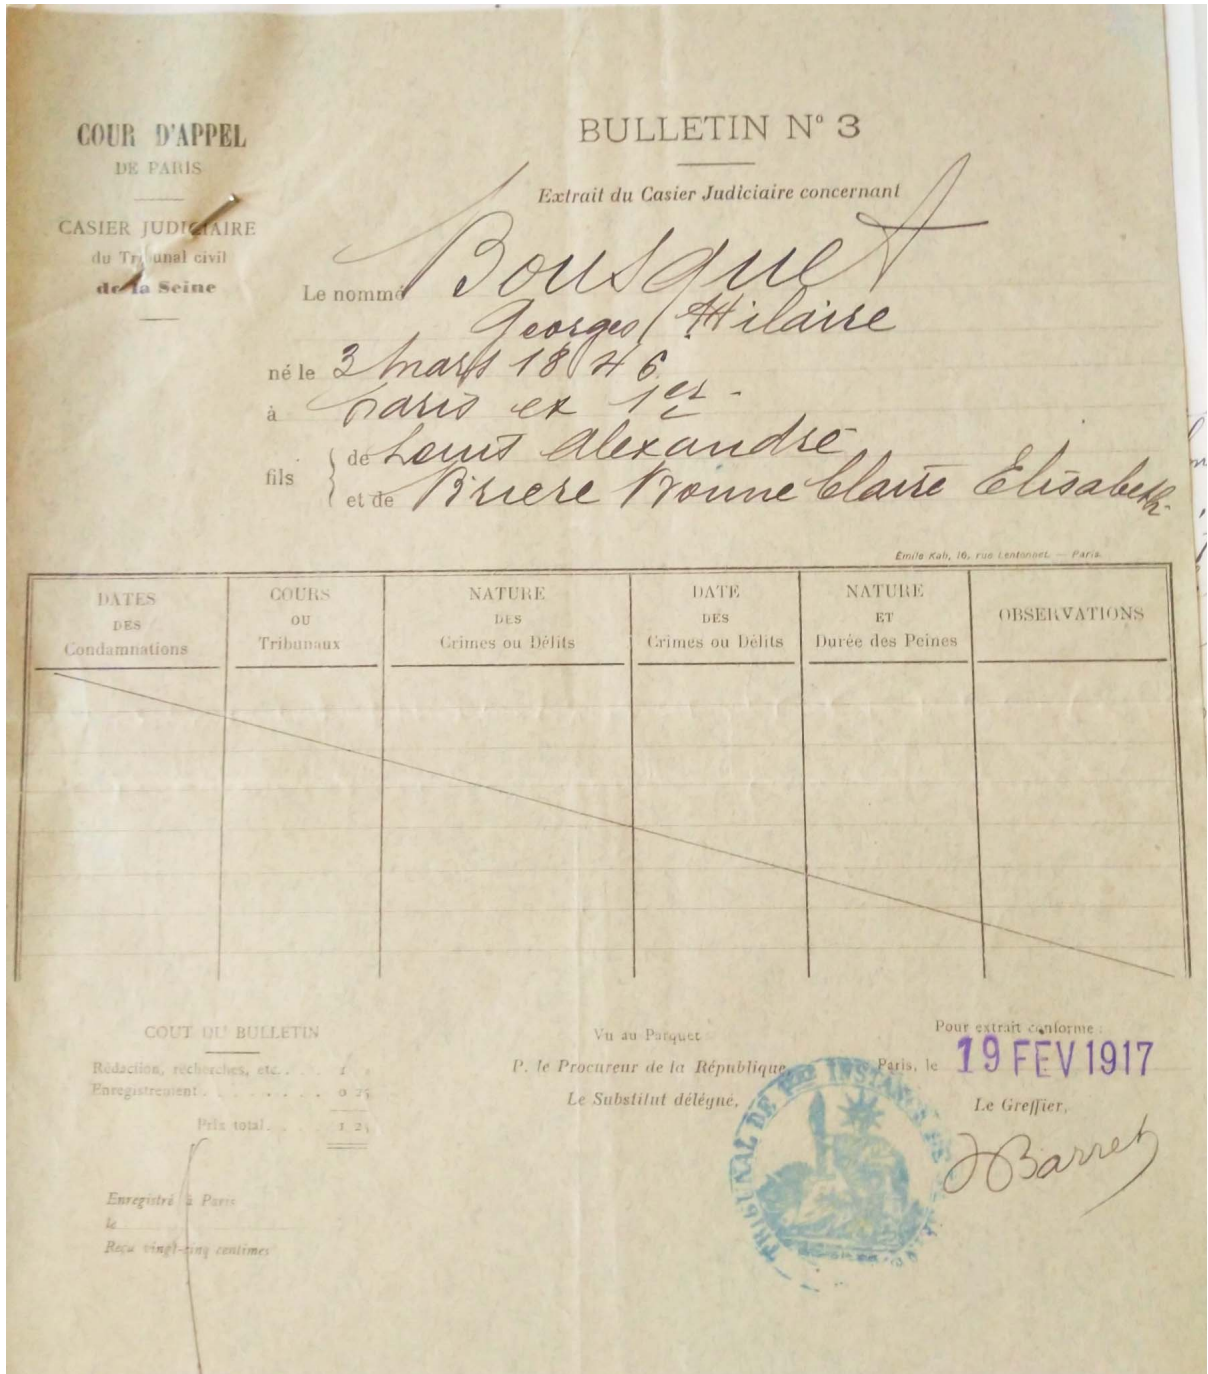 COUR D'APPEL
DE PARIS
CASIER JUDICIAIRE
du Tribunal civil
de la Seine
BULLETIN N° 3
Extrait du Casier Judiciaire concernant
Le nommé Bousquet
Georges Hilaire
né le 3 mars 1846
à Paris ex 1er
fils de Louis Alexandre
et de Briere Bonne Claire Elisabeth
Émile Kah, 16, rue — Paris.
DATES
DES
Condamnations
COURS
OU
Tribunaux
NATURE
DES
Crimes ou Délits
DATE
DES
Crimes ou Délits
NATURE
ET
Durée des Peines
OBSERVATIONS
COUT DU BULLETIN
Rédaction, recherches, etc. . . 1 »
Enregistrement . . . . . . . . 0 25
Prix total. . . 1 25
Enregistré à Paris
le
Reçu vingt-cinq centimes
Vu au Parquet
P. le Procureur de la République,
Le Substitut délégué,
Pour extrait conforme :
Paris, le 19 FEV 1917
Le Greffier,
Barret
TRIBUNAL DE 1re INSTANCE